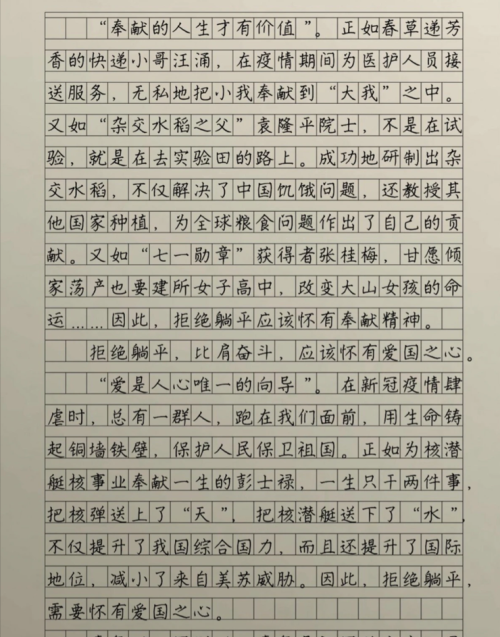 “奉献的人生才有价值”。正如春草递芳
香的快递小哥汪涌，在疫情期间为医护人员接
送服务，无私地把小我奉献到“大我”之中。
又如“杂交水稻之父”袁隆平院士，不是在试
验，就是在去实验田的路上。成功地研制出杂
交水稻，不仅解决了中国饥饿问题，还教授其
他国家种植，为全球粮食问题作出了自己的贡
献。又如“七一勋章”获得者张桂梅，甘愿倾
家荡产也要建所女子高中，改变大山女孩的命
运……因此，拒绝躺平应该怀有奉献精神。
拒绝躺平，比肩奋斗，应该怀有爱国之心。
“爱是人心唯一的向导”。在新冠疫情肆
虐时，总有一群人，跑在我们面前，用生命铸
起铜墙铁壁，保护人民保卫祖国。正如为核潜
艇核事业奉献一生的彭士禄，一生只干两件事，
把核弹送上了“天”，把核潜艇送下了“水”，
不仅提升了我国综合国力，而且还提升了国际
地位，减小了来自美苏威胁。因此，拒绝躺平，
需要怀有爱国之心。